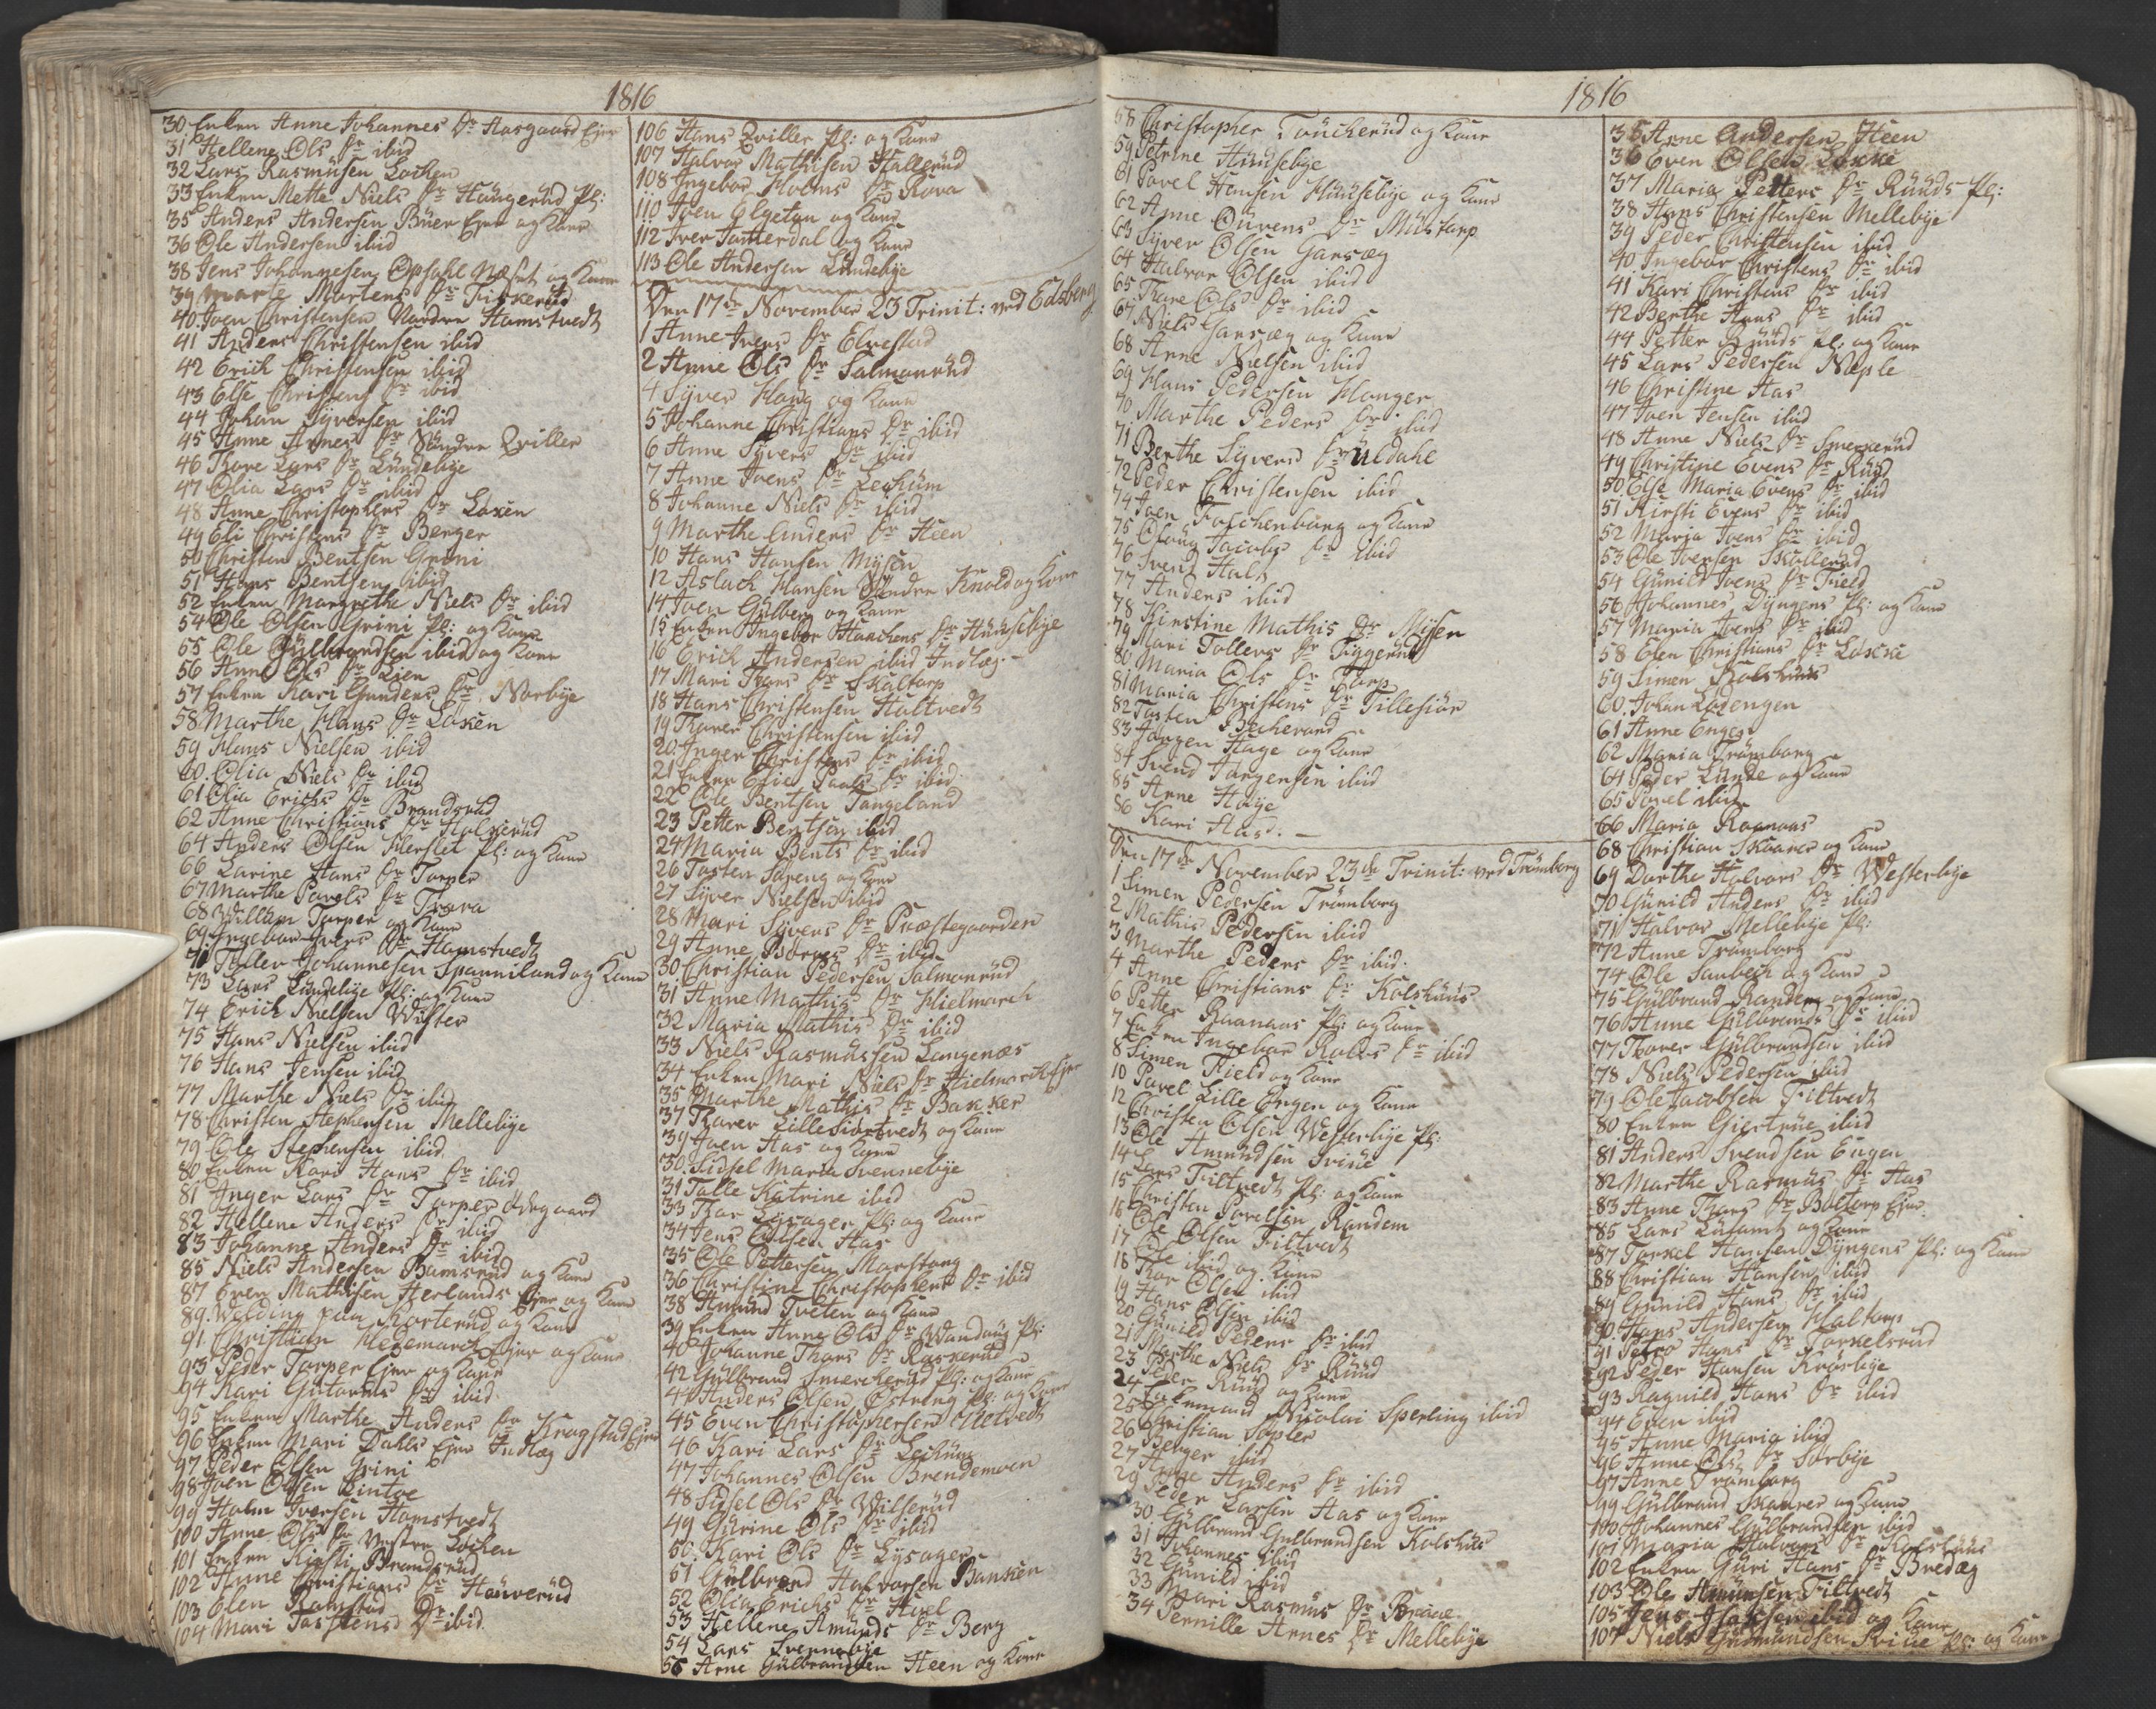 1816
30. Enken Anne Johannes Dr Aasgaard Ejer
31 Hellene Ols Dr ibid
32 Lars Rasmüsen Lochen
33 Enken Mette Niels Dr Haügerüd Pl:
35 Anders Andersen Büer Ejer og Kone
36 Ole Andersen ibid
38 Jens Johannesen Opsahl Næset og Kone
39 Marte Martens Dr Fiskerüd
40. Joen Christensen Nordre Hamstvedt
41 Anders Christensen ibid
42 Erich Christensen ibid
43 Else Christens Dr ibid
44 Johan Syversen ibid
45 Anne Arnes Dr Søndre Qviller
46 Thore Lars Dr Lündebye
47 Olia Lars Dr ibid
48 Anne Christophers Dr Løken
49 Eli Christens Dr Berger
50 Christen Bentsen Grini
51 Hans Bentsen ibid
52 Enken Margrethe Niels Dr ibid
54 Ole Olsen Grini Pl: og Kone
55 Ole Gülbrandsen ibid og Kone
56 Anne Ols Dr Lien
57 Enken Kari Gunders Dr Norbye
58 Marthe Hans Dr Løken
59 Hans Nielsen ibid
60. Olia Niels Dr ibid
61 Olia Erichs Dr Brandsrüd
62 Anne Christians Dr Holserüd
64 Anders Olsen Slerstet Pl: og Kone
66 Larine Hans Dr Torper
67 Marthe Povels Dr Trøra
68 Willum Torper og Kone
69 Ingebor Ivers Dr Hamstvedt
71 Toller Johannesen Spanniland og Kone
73 Lars Lündebye Pl: og Kone
74 Erich Nielsen Wister
75 Hans Nielsen ibid
76 Hans Jensen ibid
77 Marthe Niels Dr ibid
78 Christen Stephensen Mellebye
79 Ole Stephensen ibid
80 Enken Kari Hans Dr ibid
81 Inger Lars Dr Torper Ødegaard
82 Hellene Anders Dr ibid
83 Johanne Anders Dr ibid
85 Niels Andersen Ramsrüd og Kone
87 Even Mathisen Herlands Ejer og Kone
89. Welding paa Korterüd og Kone
91 Christian Hedemarch Ejer og Kone
93 Peder Torper Ejer og Kone
94 Kari Gutorms Dr ibid
95 Enken Marthe Anders Dr Kragstad Ejer
96 Enken Mari Dahls Ejer Indlæg
97 Peder Olsen Grini
98 Joen Olsen Lintoe
99 Halvor Iversen Hamstvedt
100 Anne Ols Dr Vestre Lochen
101 Enken Kirsti Brandsrüd
102 Anne Christians Dr Haüverüd
103 Elen Ramstad
104 Mari Tostens Dr ibid
106 Hans Qviller Pl: og Kone
107 Halvor Mathisen Hallerüd
108 Ingebor Holms Dr Kova
110 Joen Elgetun og Kone
112 Iver Tomterdal og Kone
113 Ole Andersen Lündebye
Den 17de November 23 Trinit: ved Edsberg
1 Anne Ivers Dr Elvestad
2 Anne Ols Dr Salmonrüd
4 Syver Haüg og Kone
5 Johanne Christians Dr ibid
6 Anne Syvers Dr ibid
7 Anne Joens Dr Lechüm
8 Johanne Niels Dr ibid
9 Marthe Anders Dr Heen
10 Hans Hansen Mysen
12 Aslach Hansen Søndre Knold og Kone
14 Joen Gülberg og Kone
15 Enken Ingebor Haachens Dr Hüüsebye
16 Erich Andersen ibid Indlæg
17 Mari Thors Dr Skaltorp
18 Hans Christensen Holtvedt
19 Thorer Christensen ibid
20 Inger Christens Dr ibid
21 Enken Elie Povels Dr ibid
22 Ole Bentsen Tangeland
23 Petter Bentsen ibid
24 Maria Bents Dr ibid
26 Tosten Spreng og Kone
27 Syver Nielsen ibid
28 Mari Syvers Dr Præstegaarden
29 Anne Børres Dr ibid
30 Christian Pedersen Salmonrüd
31 Anne Mathis Dr Hielmarck
32 Maria Mathis Dr ibid
33 Niels Rasmüssen Langenæs
34 Enken Mari Niels Dr Hielmarck Ejer
35 Marthe Mathis Dr Bakker
37 Thorer Lillesiørtvedt og Kone
39 Joen Aas og Kone
30. Sidsel Maria Svennebye
31 Talle Katrine ibid
33 Thor Lysager Pl: og Kone
34 Jens Olsen Aas
35 Ole Pettersen Morstong
36 Christine Christophers Dr ibid
38 Amünd Tveten og Kone
39 Enken Anne Ols Dr Wandaüg Pl:
40 Johanne Thors Dr Raskerüd
42 Gülbrand Smerckerüd Pl: og Kone
44 Anders Olsen Østreng Pl: og Kone
45 Even Christophersen Hetvedt
46 Kari Lars Dr Lechüm
47 Johannes Olsen Brendemoen
48 Sidsel Ols Dr Wilserüd
49 Gürine Ols Dr ibid
50. Kari Ols Dr Lysager
51 Gülbrand Halvorsen Banken
52 Olia Erichs Dr Huel
53 Hellene Amünds Dr Berg
54 Lars Svennebye
56 Arne Gülbrandsen Heen og Kone
1816
58 Christopher Toücherüd og Kone
59 Petrine Hüüsebye
61 Povel Hansen Hüüsebye og Kone
62 Anne Gürens Dr Müstorp
63 Syver Olsen Gansæg
64 Halvor Olsen ibid
65 Thore Ols Dr ibid
67 Niels Gansæg og Kone
68 Arne Nielsen ibid
69 Hans Pedersen Honger
70 Marthe Peders Dr ibid
71 Berthe Syvers Dr Üldahl
72 Peder Christensen ibid
74 Joen Foschenborg og Kone
75 Olaüg Jacobs Dr ibid
76 Svend Hals
77 Anders ibid
78 Kirstine Mathis Dr Mysen
79 Mari Tollevs Dr Tiggerüd
80 Maria Ols Dr Torp
81 Maria Christens Dr Tillesiør
82 Tosten Becherand
83 Jørgen Hage og Kone
84 Svend Jørgensen ibid
85 Anne Høÿe
86 Kari Aas. –
Den 17de November 23de Trinit: ved Trömborg
1 Simen Pedersen Trömborg
2 Mathis Pedersen ibid
3 Marthe Peders Dr ibid.
4 Anne Christians Dr Kolshüüs
6 Petter Raanaas Pl: og Kone
7 Enken Ingebor Rolvs Dr ibid
8 Simen Field og Kone
10 Povel Lille Engen og Kone
12 Christen Olsen Westerbye Pl:
13 Ole Amundsen Qviüe
14 Lars Filtvedt Pl: og Kone
15 Christen Povelsen Randem
16 Ole Olsen Filtvedt
17 Ole ibid og Kone
18 Thor Olsen ibid
19 Hans Olsen ibid
20 Günild Peders Dr ibid
21 Marthe Niels Dr Rüüd
23 Peder Rüüd og Kone
24 Enkemand Nicolai Sperling ibid
25 Christian Sopler
26 Berger ibid
27 Anne Anders Dr ibid
29 Peder Larsen Aas og Kone
30 Gülbrand Gulbrandsen Kolshüs
31 Johannes ibid
32 Günild ibid
33 Mari Rasmüs Dr Braae
34 Pernille Arnes Dr Mellebye
35 Arne Andersen Heen
36 Even Olsen Løkke
37 Maria Petters Dr Rüüds Pl:
38 Hans Christensen Mellebye
39 Peder Christensen ibid
40. Ingebor Christens Dr ibid
41 Kari Christens Dr ibid
42 Berthe Hans Dr ibid
44 Petter Rüüds Pl: og Kone
45 Lars Pedersen Næple
46 Christine Aas
47 Joen Jensen ibid
48 Anne Niels Dr Smerkerüd
49 Christine Evens Dr Rüüd
50 Else Maria Evens Dr ibid
51 Kirsti Evens Dr ibid
52 Maria Joens Dr ibid
53 Ole Joensen Skollerüd
54 Günild Joens Dr Field
56 Johannes Dyngens Pl: og Kone
57 Maria Joens Dr ibid
58 Elen Christians Dr Løkke
59 Simen Kolshüüs
60. Johan Lødengen
61 Anne Engen
62 Maria Trömborg
64 Peder Lunde og Kone
65 Povel ibid
66 Maria Raanaas
68 Christian Skaarer og Kone
69 Dorthe Halvors Dr Westerbye
70 Günild Anders Dr ibid
71 Halvor Mellebye Pl:
72 Anne Trömborg
74 Ole Sanbech og Kone
75 Gülbrand Randem og Kone
76 Anne Gülbrands Dr ibid
77 Thorer Gülbrandsen ibid
78 Niels Pedersen ibid
79 Ole Jacobsen Filtvedt
80 Enken Giertrüe ibid
81 Anders Svendsen Engen
82 Marthe Rasmüs Dr Aas
83 Anne Thors Dr Boltorp Ejer.
85 Lars Lüsamt og Kone
87 Torkel Hansen Dyngens Pl: og Kone
88 Christian Hansen ibid
89 Günild Hans Dr ibid
90. Hans Andersen Haltorp
91 Petro Hans Dr Torkelsrüd
92 Peder Hansen Krosbye
93 Ragnild Hans Dr ibid
94 Even ibid
95 Anne Maria ibid
96 Anne Ols Dr Sørbye
97 Anne Trömborg
99 Gülbrand Skaarer og Kone
100 Johannes Gülbrandsen ibid
101 Maria Halvors Dr Kolshüüs
102 Enken Güri Hans Dr Bredæg
103 Ole Amünsen Filtvedt
105 Jens Isaksen ibid og Kone
107 Niels Gudmündsen Kviüe Pl: og Kone